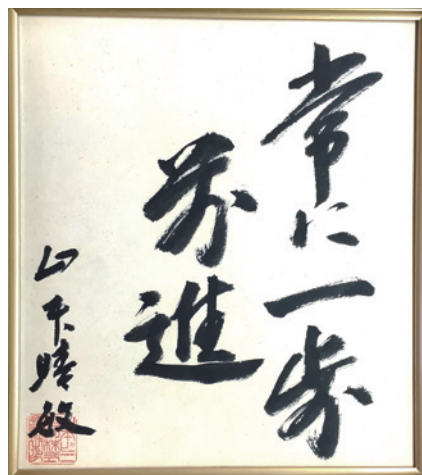 常に一歩
前進
山下晴敏